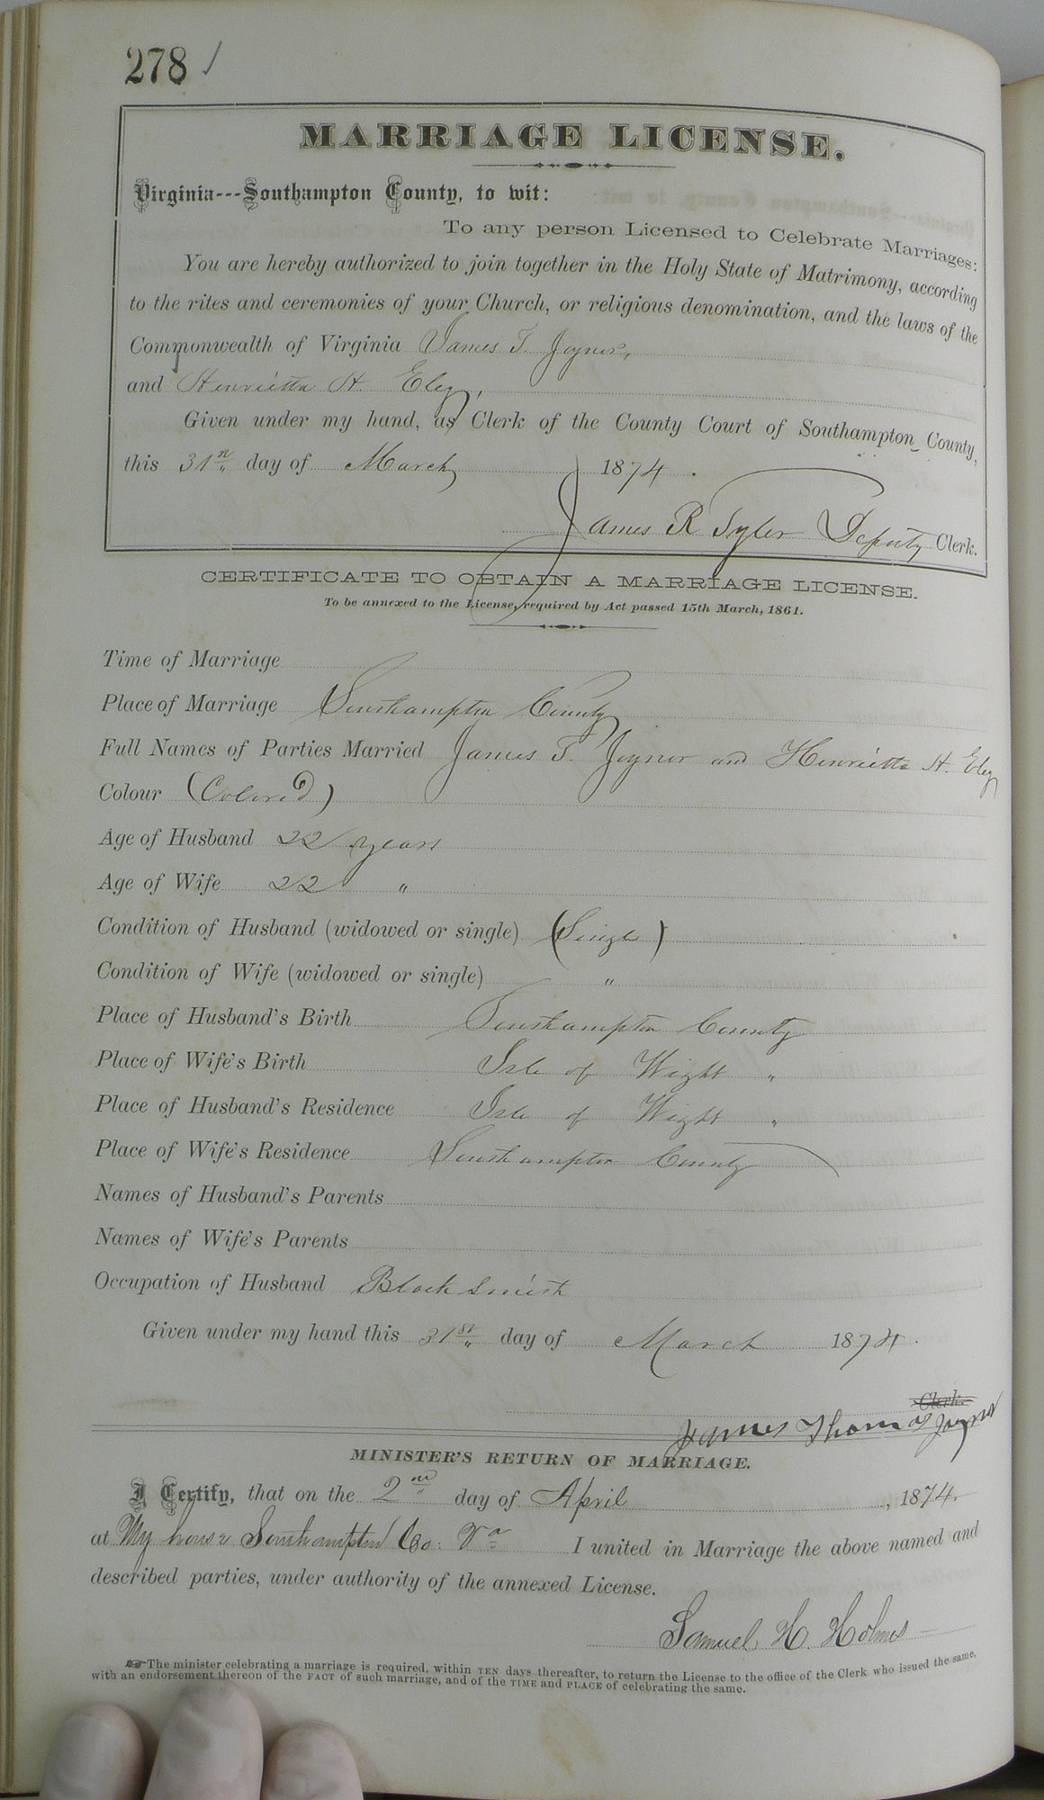 278
MARRIAGE LICENSE.
Virginia---Southampton County, to wit:
To any person Licensed to Celebrate Marriages:
You are hereby authorized to join together in the Holy State of Matrimony, according
to the rites and ceremonies of your Church, or religious denomination, and the laws of the
Commonwealth of Virginia James T. Joyner,
and Henrietta H. Eley,
Given under my hand, as Clerk of the County Court of Southampton County,
this 31st day of March 1874.
James R Tyler Deputy Clerk.
CERTIFICATE TO OBTAIN A MARRIAGE LICENSE.
To be annexed to the License, required by Act passed 15th March, 1861.
Time of Marriage
Place of Marriage Southampton County
Full Names of Parties Married James T. Joyner and Henrietta H. Eley
Colour (Colored)
Age of Husband 22 years
Age of Wife 22 "
Condition of Husband (widowed or single) (Single)
Condition of Wife (widowed or single) "
Place of Husband's Birth Southampton County
Place of Wife's Birth Isle of Wight "
Place of Husband's Residence Isle of Wight "
Place of Wife's Residence Southampton County
Names of Husband's Parents
Names of Wife's Parents
Occupation of Husband Blacksmith
Given under my hand this 31st day of March 1874.
Clerk.
James Thomas Joyner
MINISTER'S RETURN OF MARRIAGE.
I Certify, that on the 2nd day of April, 1874.
at My house Southampton Co: Va I united in Marriage the above named and
described parties, under authority of the annexed License.
Samuel H. Holmes
☞The minister celebrating a marriage is required, within TEN days thereafter, to return the License to the office of the Clerk who issued the same,
with an endorsement thereon of the FACT of such marriage, and of the TIME and PLACE of celebrating the same.